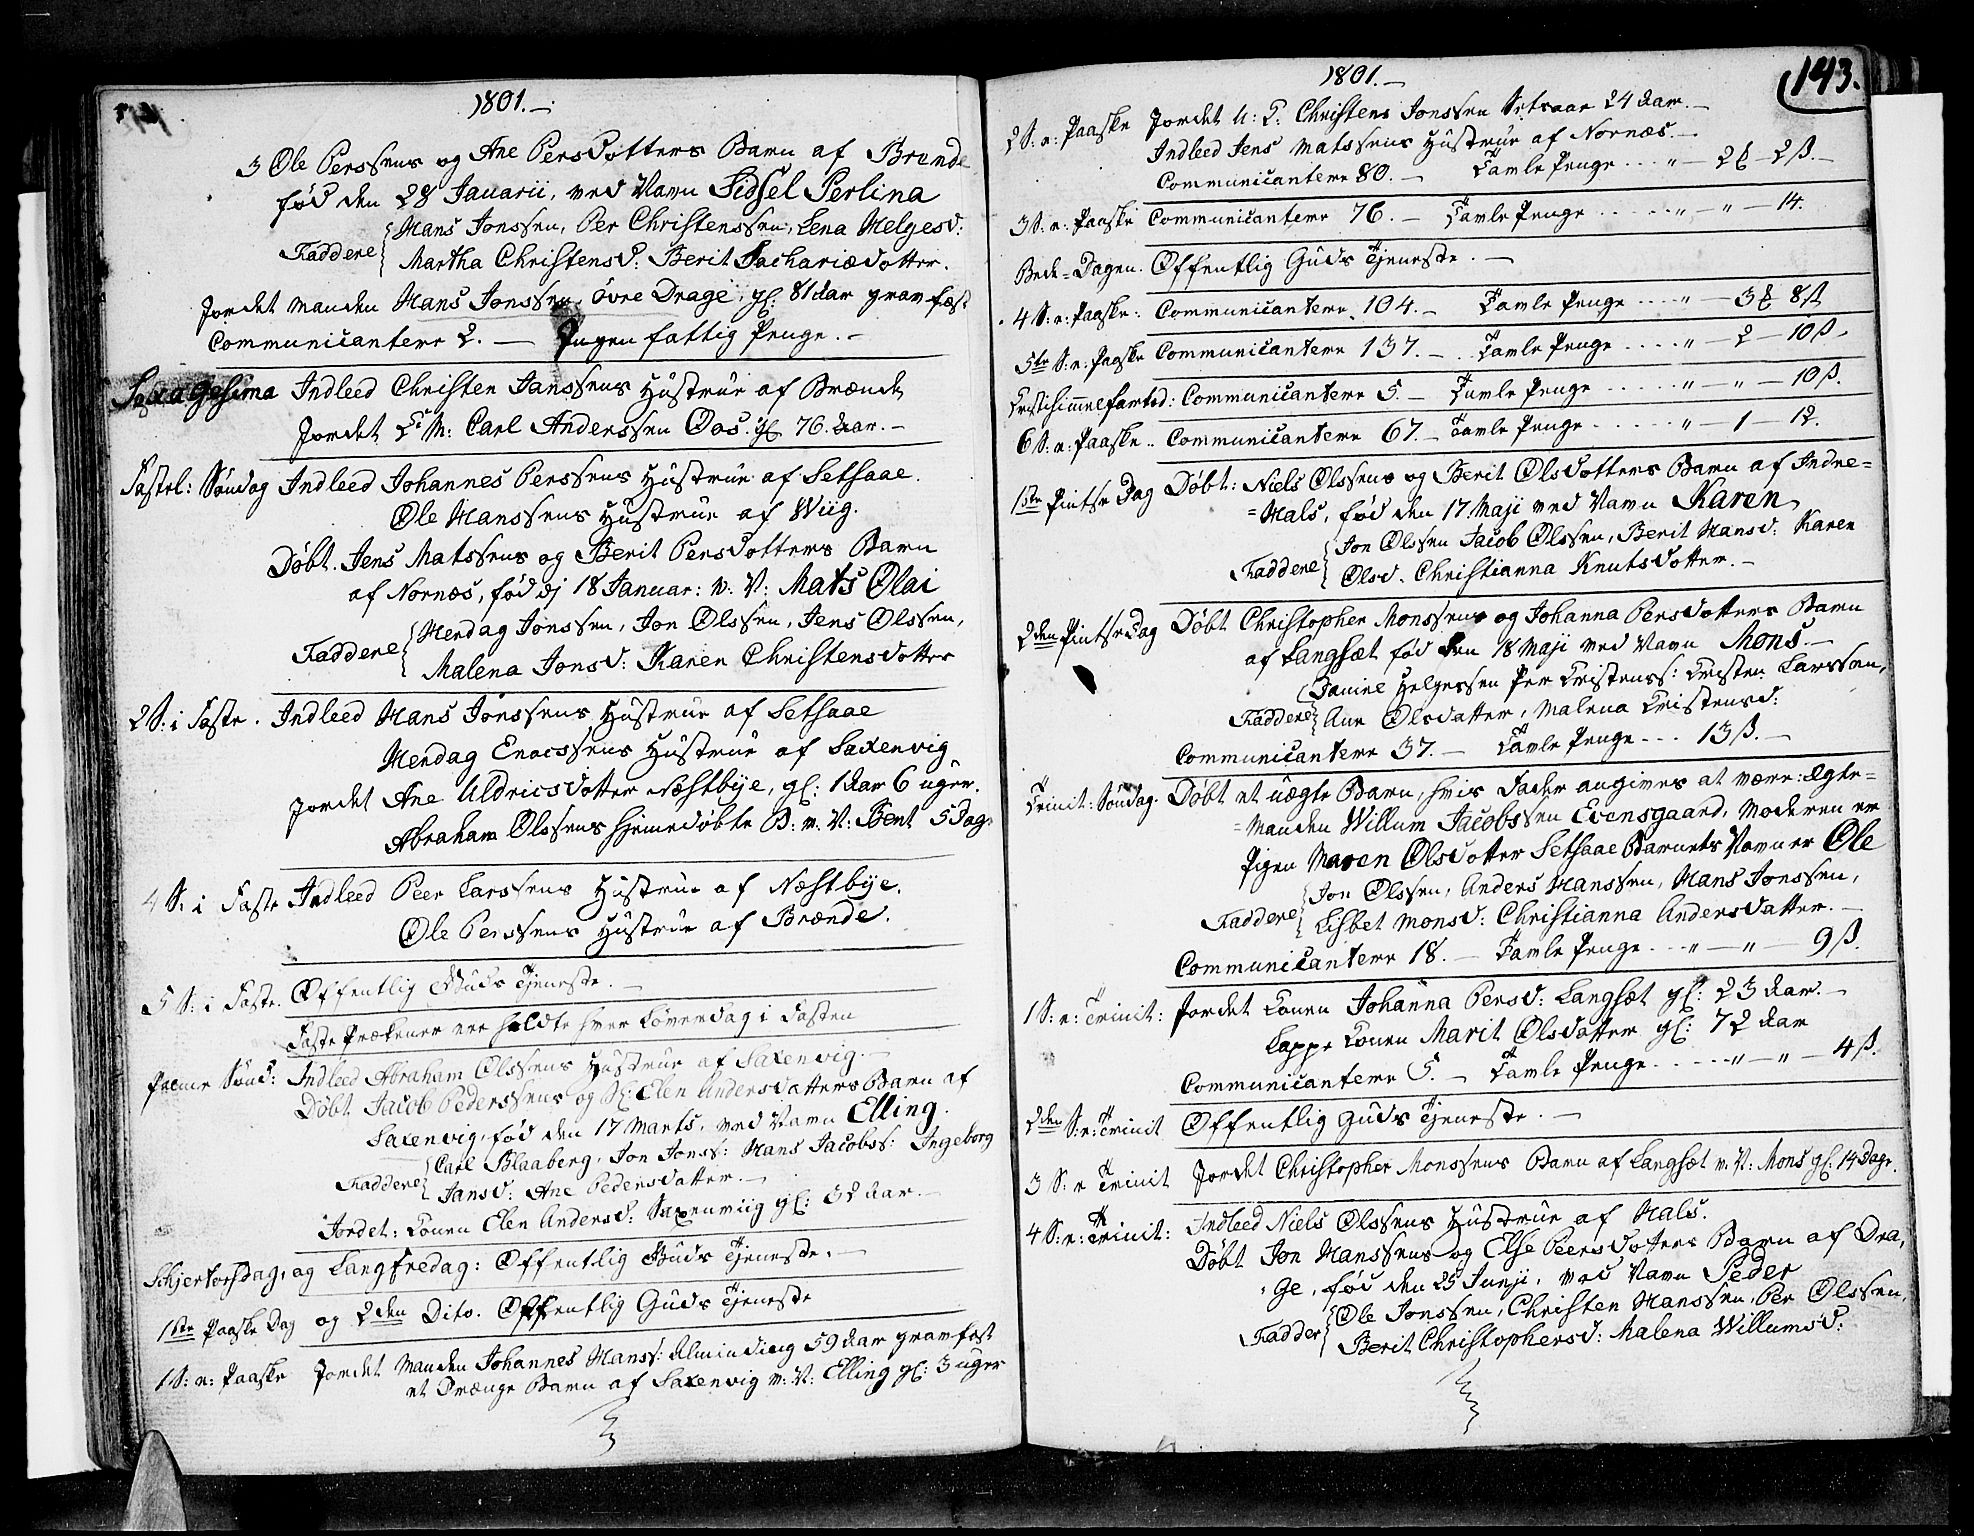 1801.-
3 Ole Perssens og Ane Persdotters Barn af Brende
fød den 28 Januarii, ved Navn Sidsel Perlina
Faddere Hans Jonssen, Per Christenssen, Lena Helgesd:
Martha Christensd: Berit Sachariædotter.
Jordet Manden Hans Jonssen øvre Drage, gl: 81 Aar gravfæst
Communicantere 2. — Ingen fattig Penge.-
Sexagesima Indleed Christen Janssens Hustrue af Brænde
Jordet Carl Anderssen Oos. gl 76. Aar.-
Fastel: Søndag Indleed Johannes Perssens Hustrue af Setsaae.
Ole Hanssens Hustrue af Wiig.
Døbt. Jens Matssens og Berit Persdotters Barn
af Nornæs, fød dj 18 Januar: v. N: Mats Olai
Faddere Herdag Jonssen, Jon Olssen, Jens Olssen,
Malena Jonsd: Karen Christensdotter
2 S: i Faste. Indleed Hans Jonssens Hustrue af Setsaae
Herdag Enocssens Hustrue af Saxenvig
Jordet Ane Uldricsdotter Næstbye, gl: 1 Aar 6 uger.
Abraham Olssens hjemedøbte B: v. N: Bent 5 Dage
4 S: i Faste Indleed Peer Larssens Hustrue af Næstbye.
Ole Perssens Hustrue af Brænde.
5 S: i Faste. Offentlig Guds Tjeneste.-
Faste Prækener ere holdte hver Løverdag i Fasten
Palme Sønd: Indleed Abraham Olssens Hustrue af Saxenvig.-
Døbt Jacob Pederssens og Sl: Elen Andersdatters Barn af
Saxenvig, fød den 17 Marts, ved Navn Elling.
Faddere Carl Blaaberg, Jon Jonss: Hans Jacobss: Ingeborg
Jansd: Ane Pedersdatter.-
Jordet: Konen Elen Andersd: Saxenviig gl: 32 Aar.-
Schjertorsdag, og Langfredag: Offentlig Guds Tjeneste.-
1ste Paaske Dag og 2den Dito. Offentlig Guds Tjeneste
1 S: e: Paaske Jordet Manden Johannes Hanss: Alminding 59 Aar gravfæst
et Drænge Barn af Saxenvig v: N: Elling gl: 3 uger
143.
1801.-
2 S: e: Paaske Jordet U: K: Christens Jonssen Setsaae 24 Aar.-
Indleed Jens Matssens Hustrue af Nornæs.-
Communicantere 80.- Tavle Penge .... " - 2 - 2 ß.-
3 S: e: Paaske Communicantere 76.- Tavle Penge ...... " - " - 14.
Bede=Dagen. Offentlig Guds Tjeneste.-
4 S: e: Paaske: Communicantere 104.- Tavle Penge .... " - 3 8 ß
5te S: e: Paaske Communicantere 137.- Tavle Penge .... " - 2 - 10 ß.
Cristi himmelfartsd: Communicantere 5.- Tavle Penge ...... " - " - 10 ß.
6 S: e: Paaske.. Communicantere 67.- Tavle Penge ...... " - 1 - 12.
1ste Pintse Dag Døbt: Niels Olssens og Berit Olsdotters Barn af Indre=
=Hals, fød den 17. Maji ved Navn Karen
Faddere Jon Olssen Jacob Olssen, Berit Hansd: Karen
Olsd. Christianna Knutsdotter.-
2den Pintse Dag Døbt Christopher Monssens og Johanna Persdotters Barn
af Langsæt fød den 18 Maji ved Navn Mons-
Faddere Daniel Helgessen Per Cristenss: Cristen Larssen,
Ane Olsdatter, Malena Cristensd:
Communicantere 37.- Tavle Penge ... 13 ß.-
Trinit: Søndag. Døbt et uægte Barn, hvis Fader angives at være: Ægte=
=Manden Willum Jacobssen Evensgaard, Moderen er
Pigen Maren Olsdotter Setsaae Barnets Navn er Ole
Faddere Jon Olssen, Anders Hanssen, Hans Jonssen,
Lisbet Monsd: Christianna Andersdatter.-
Communicantere 18.- Tavle Penge ... " - " - 9 ß.
1 S: e: Trinit: Jordet Konen Johanna Persd: Langsæt gl: 23 Aar.-
Lappe Konen Marit Olsdatter gl: 72 Aar
Communicantere 5.- Tavle Penge ...... " - " - 4 ß.
2den S: e: Trinit Offentlig Guds Tjeneste.-
3 S: e Trinit Jordet Christopher Monssens Barn af Langsæt v. N: Mons gl: 14 Dage.
4 S: e: Trinit: Indleed Niels Olssens Hustrue af Hals.
Døbt Jon Hanssens og Else Peersdotters Barn af Dra,
ge, fød den 25 Junji, ved Navn Peder
Fadder Ole Jonssen, Christen Hanssen, Per Olssen,
Berit Christophersd: Malena Willumsd: